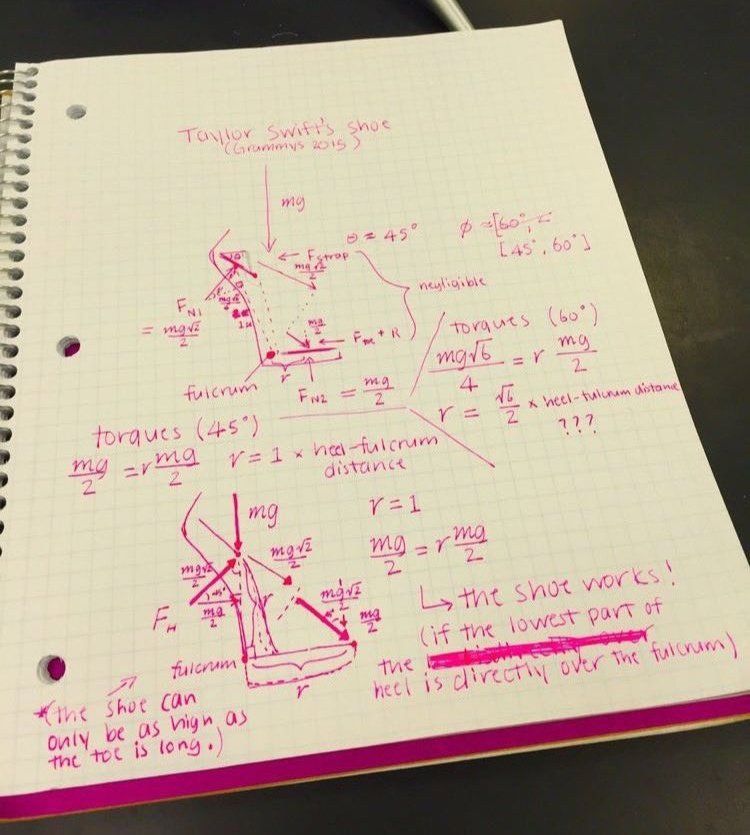 Taylor Swift's Shoe
(Grammys 2015)
mg
θ = 45°
ϕ = [60°,
[45°, 60°]
← Fstrap
mg√2/2
negligible
FN1
= mg√2/2
mg/2
fulcrum
r
FN2 = mg/2
torques (60°)
mg√6/4 = r mg/2
r = √6/2 × heel-fulcrum distance
???
torques (45°)
mg/2 = r mg/2
r = 1 × heel-fulcrum
distance
mg
r = 1
mg/2 = r mg/2
mg√2/2
mg√2/2
mg√2/2
45°
mg/2
mg/2
FH
r
fulcrum
r
↳ the shoe works!
(if the lowest part of
the
heel is directly over the fulcrum)
*(the shoe can
only be as high as
the toe is long.)